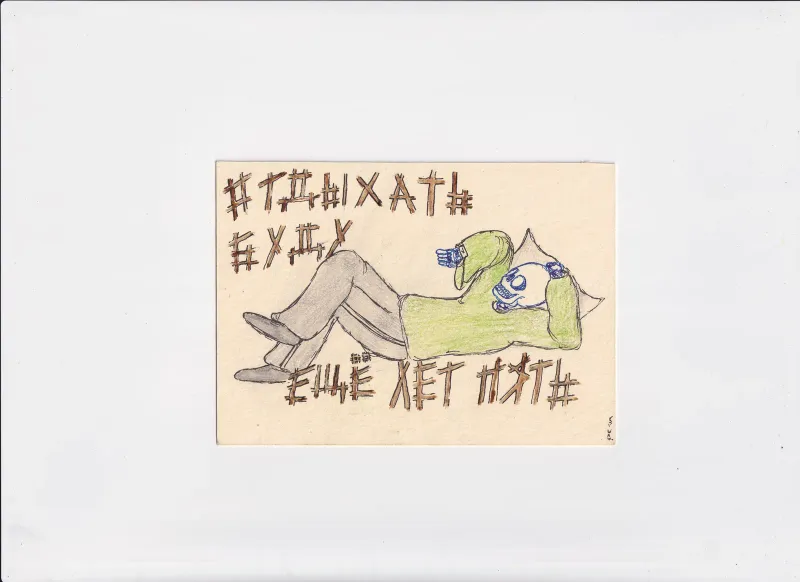 ОТДЫХАТЬ
БУДУ
ЕЩЁ ЛЕТ ПЯТЬ